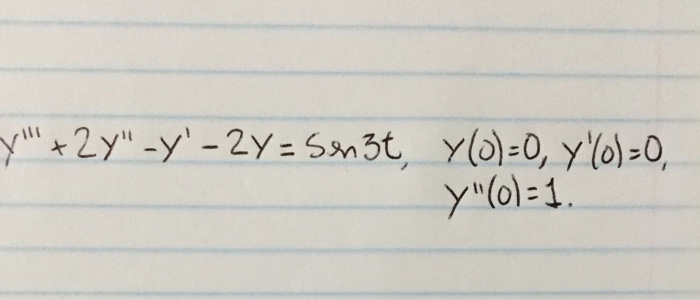 y''' + 2y'' - y' - 2y = Sen3t, y(0)=0, y'(0)=0,
y''(0)=1.